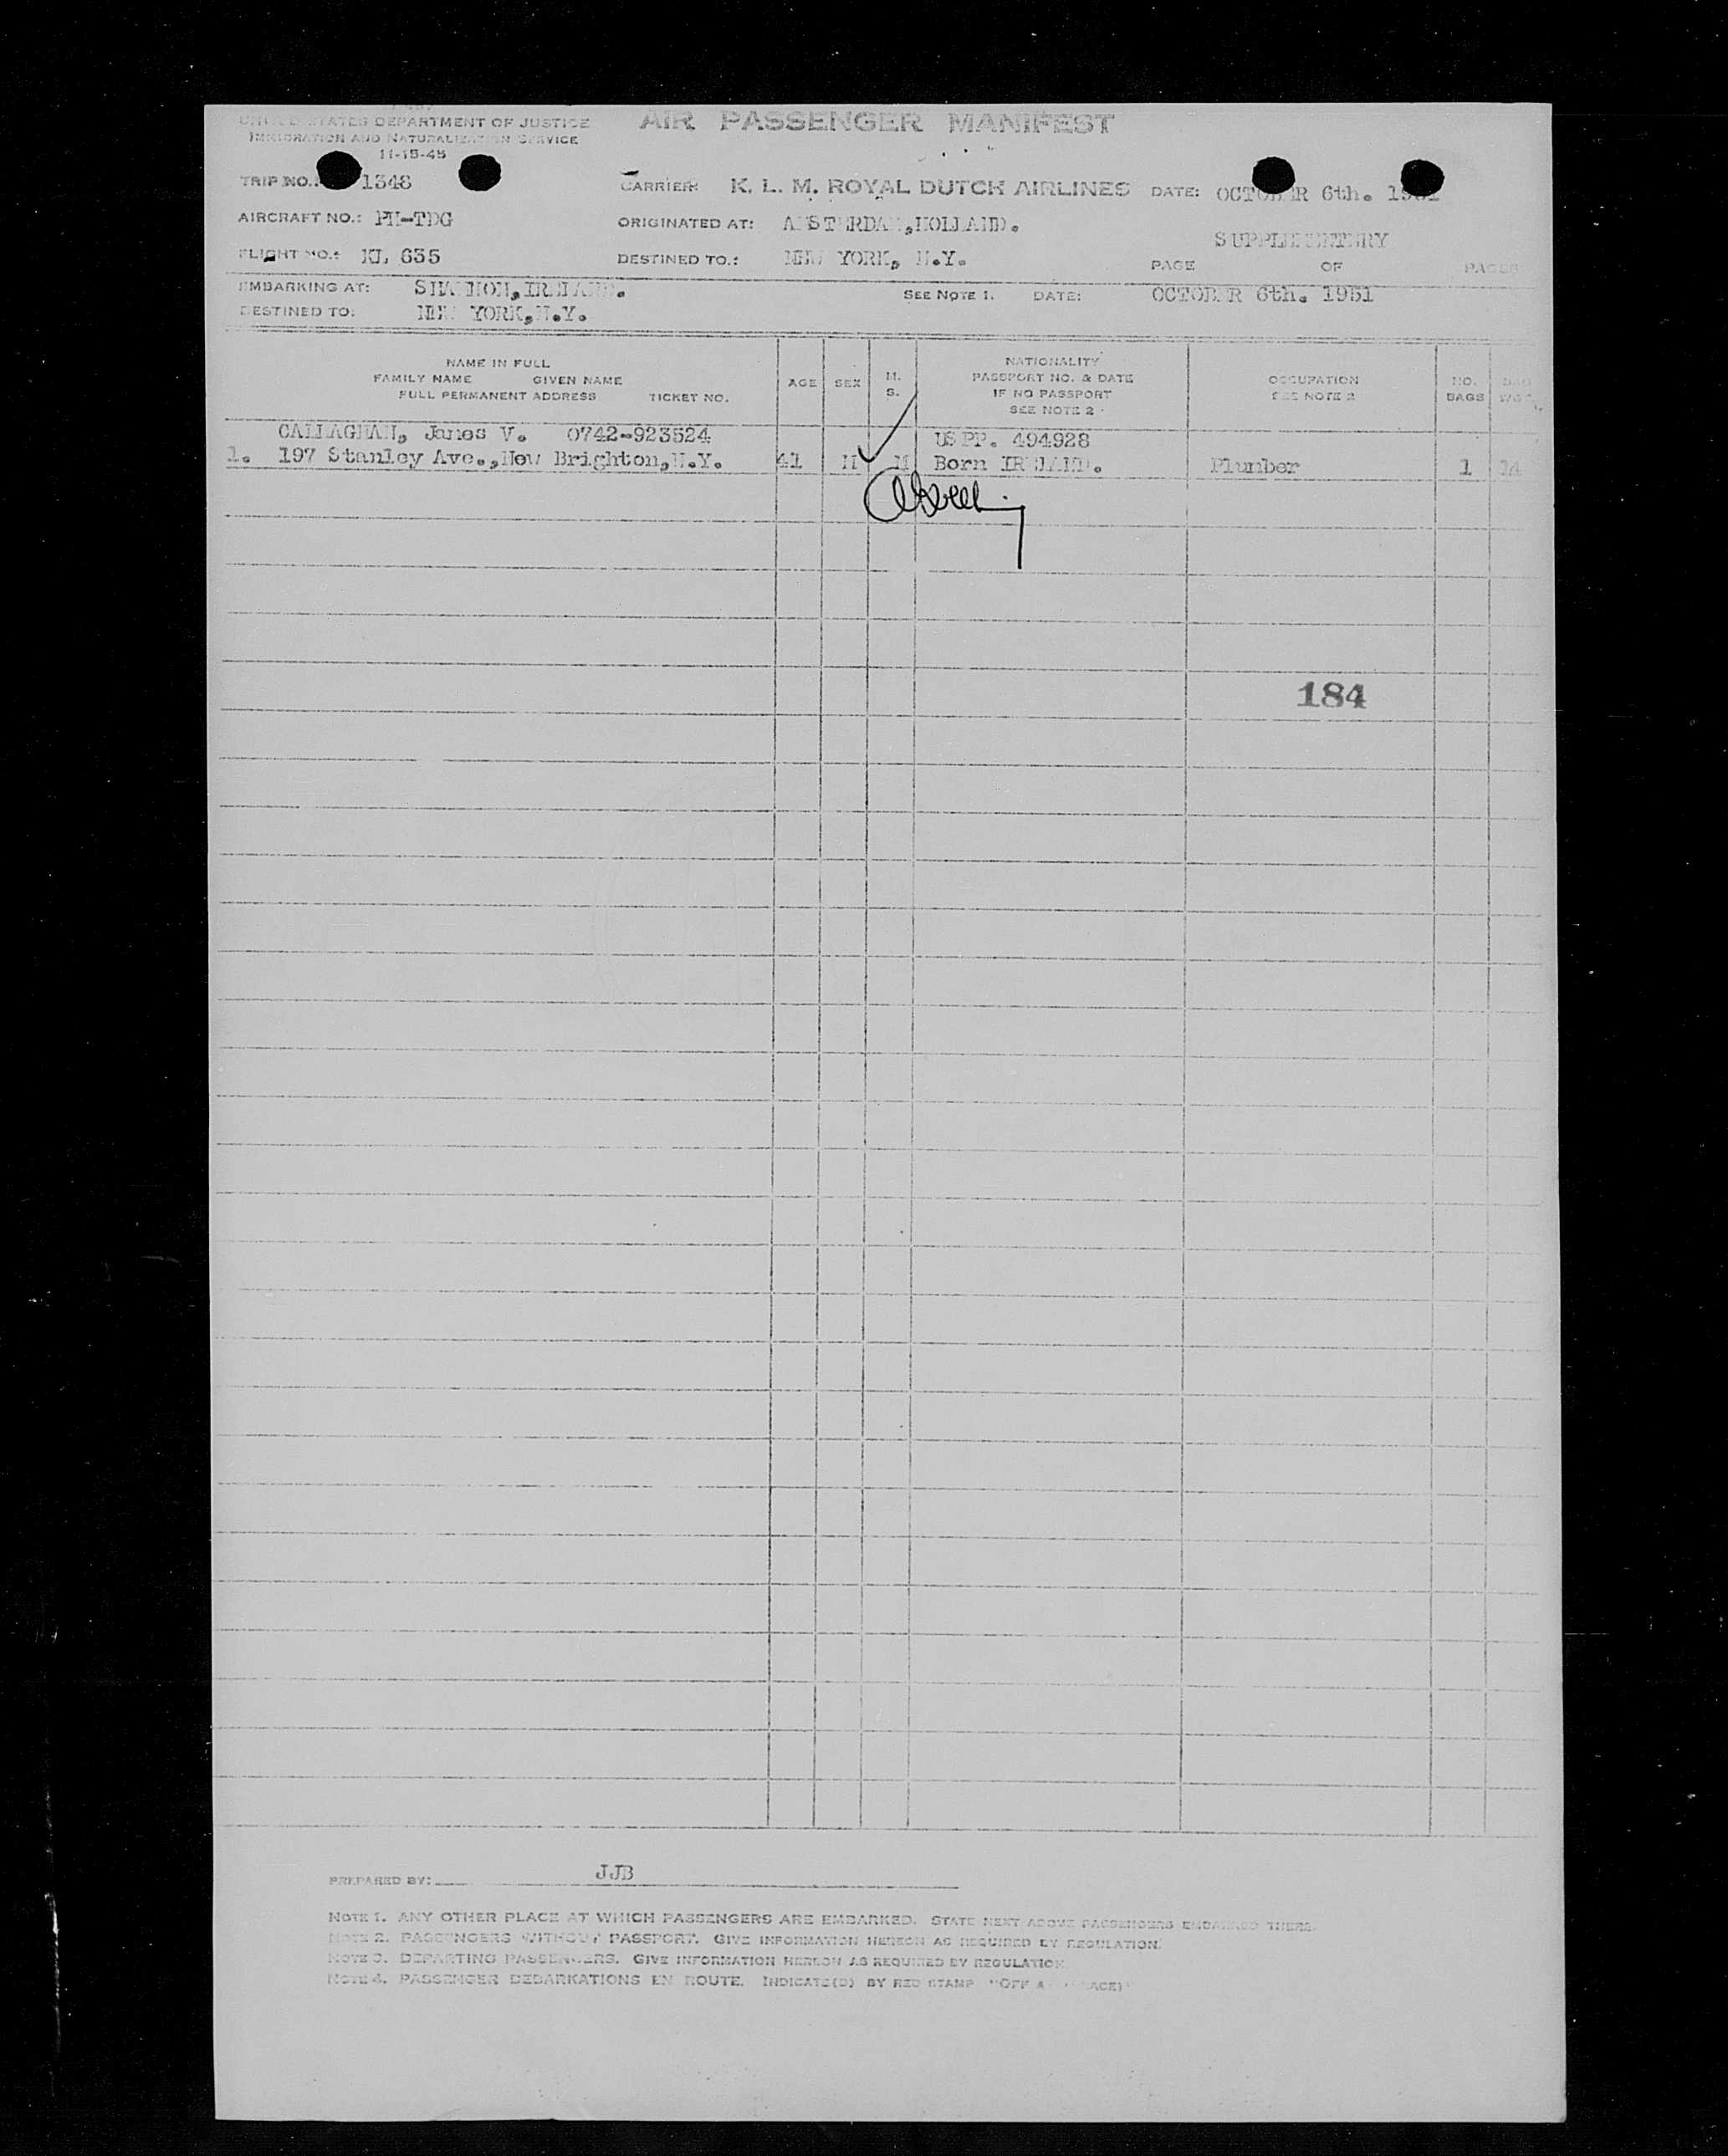 UNITED STATES DEPARTMENT OF JUSTICE
IMMIGRATION AND NATURALIZATION SERVICE
11-15-45
AIR PASSENGER MANIFEST
TRIP NO.: 1348
CARRIER: K. L. M. ROYAL DUTCH AIRLINES
DATE: OCTOBER 6th. 1951
AIRCRAFT NO.: PH-TDG
ORIGINATED AT: AMSTERDAM,HOLLAND.
SUPPLEMENTERY
FLIGHT NO.: KL 635
DESTINED TO.: NEW YORK, N.Y.
PAGE OF PAGES
EMBARKING AT: SHANNON,IRELAND.
SEE NOTE 1. DATE: OCTOBER 6th. 1951
DESTINED TO: NEW YORK,N.Y.
NAME IN FULL
FAMILY NAME GIVEN NAME
FULL PERMANENT ADDRESS TICKET NO.
AGE
SEX
M.
S.
NATIONALITY
PASSPORT NO. & DATE
IF NO PASSPORT
SEE NOTE 2
OCCUPATION
SEE NOTE 2
NO.
BAGS
BAG
CALLAGHAN, James V. 0742-923524 US PP. 494928
1. 197 Stanley Ave.,New Brighton,N.Y. 41 M M Born IRELAND. Plumber 1 14
184
PREPARED BY: JJB
NOTE 1. ANY OTHER PLACE AT WHICH PASSENGERS ARE EMBARKED. STATE NEXT ABOVE PASSENGERS EMBARKED THERE.
NOTE 2. PASSENGERS WITHOUT PASSPORT. GIVE INFORMATION HEREON AS REQUIRED BY REGULATION.
NOTE 3. DEPARTING PASSENGERS. GIVE INFORMATION HEREON AS REQUIRED BY REGULATION
NOTE 4. PASSENGER DEBARKATIONS EN ROUTE. INDICATE(D) BY RED STAMP "OFF AT (PLACE)"